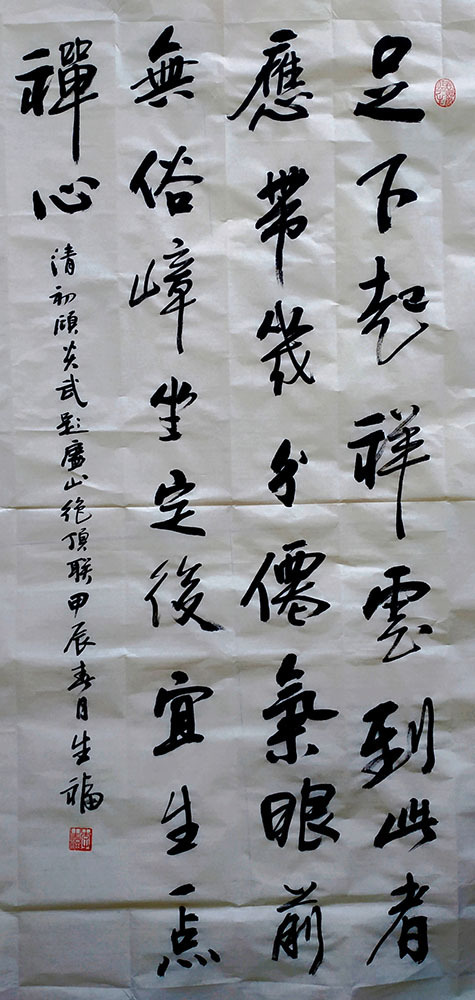 足下起祥雲到此者
應帶幾分僊氣眼前
無俗嶂坐定後宜生一点
禪心
清初顾炎武题庐山绝頂联甲辰春日生福